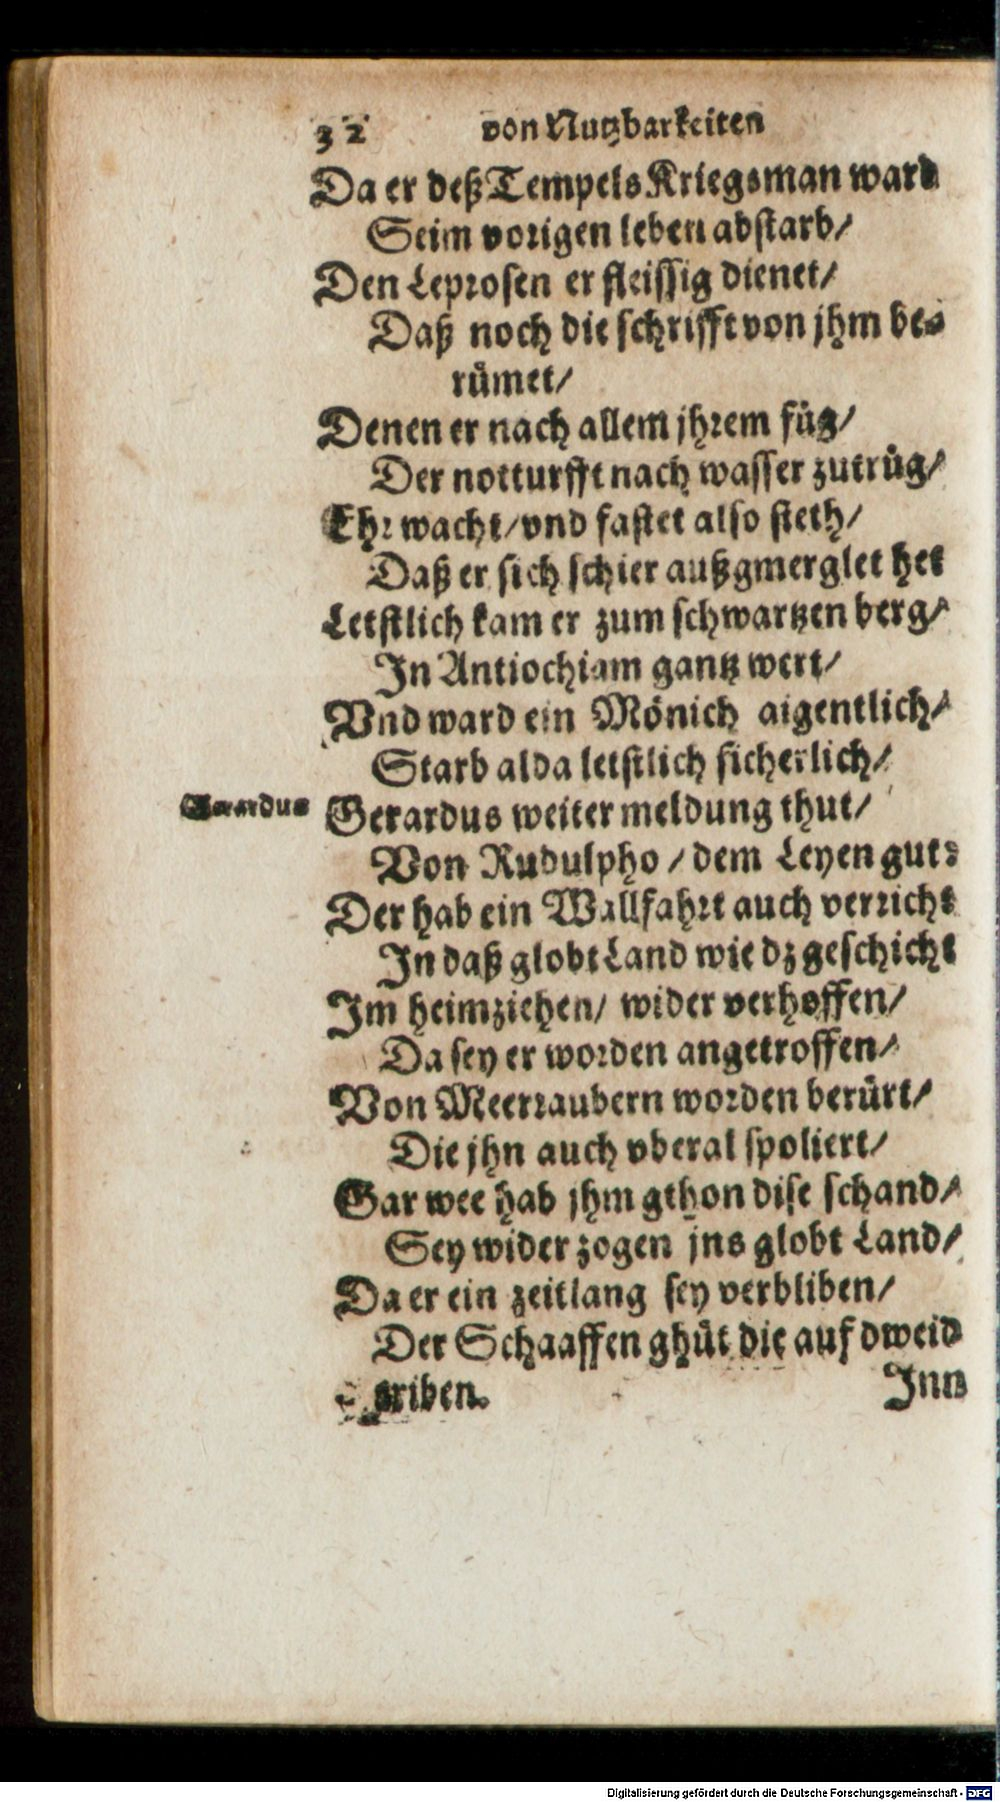 32 von Nutzbarkeiten
Da er deß Tempels Kriegsman ward
Seim vorigen leben abstarb/
Den Leprosen er fleissig dienet/
Daß noch die schrifft von jhm be-
rümet/
Denen er nach allem jhrem füg/
Der notturfft nach wasser zutrůg/
Ehr wacht/vnd fastet also steth/
Daß er sich schier außgmerglet het
Letstlich kam er zum schwartzen berg/
In Antiochiam gantz wert/
Vnd ward ein Mönich aigentlich/
Starb alda letstlich sicherlich/
Gerardus
Gerardus weiter meldung thut/
Von Rudulpho / dem Leyen gut:
Der hab ein Wallfahrt auch verricht
In daß globt Land wie dz geschicht
Im heimziehen/ wider verhoffen/
Da sey er worden angetroffen/
Von Meerraubern worden berürt/
Die jhn auch vberal spoliert/
Gar wee hab jhm gthon dise schand/
Sey wider zogen jns globt Land/
Da er ein zeitlang sey verbliben/
Der Schaaffen ghüt die auf dweid
triben. Inn
Digitalisierung gefördert durch die Deutsche Forschungsgemeinschaft - DFG